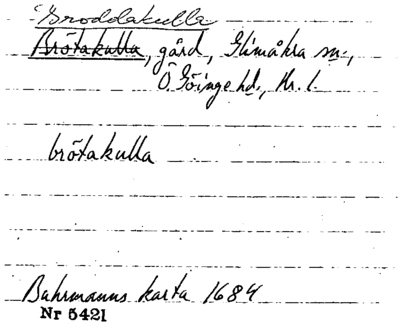 Broddakulla
Brötakulla, gård, Glimåkra sn.,
Ö Göinge hd., Kr. l.
brötakulla
Buhrmanns karta 1684
Nr 5421